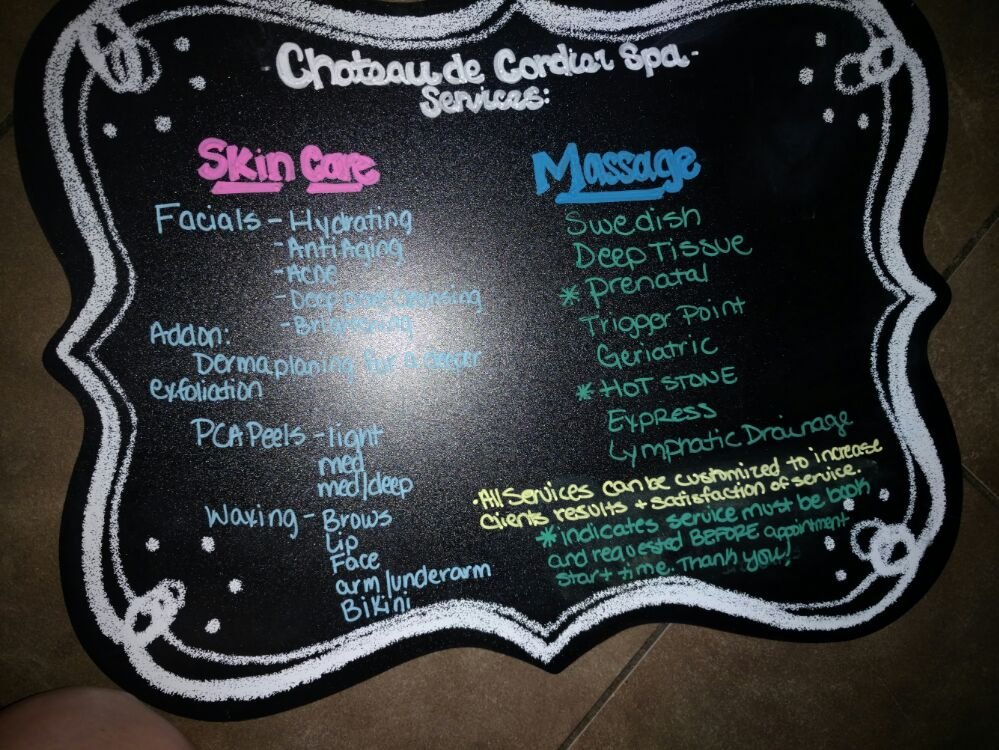 Chateau de Cordier Spa-
Services:
Skin Care
Facials - Hydrating
- Anti Aging
- Acne
- Deep Pore Cleansing
- Brightening
Addon:
Dermaplaning for a deeper
exfoliation
PCA Peels - light
med
med/deep
Waxing - Brows
Lip
Face
arm/underarm
Bikini
Massage
Swedish
Deep Tissue
* Prenatal
Trigger Point
Geriatric
* HOT STONE
Express
Lymphatic Drainage
· All Services can be customized to increase
clients results + satisfaction of service.
* indicates service must be book
and requested BEFORE appointment
start time. Thank you!